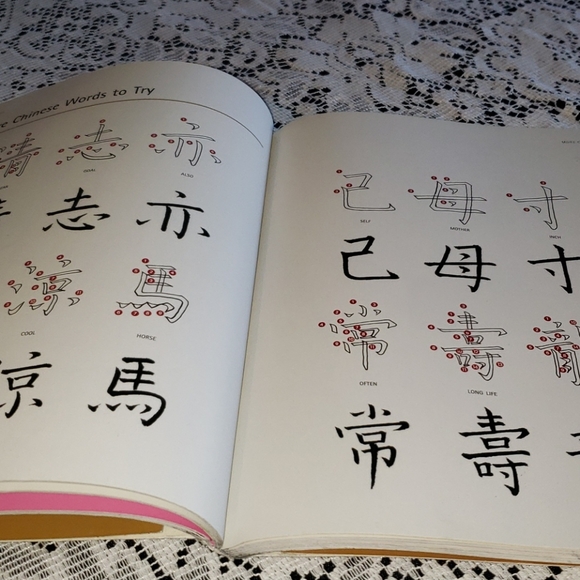 Chinese Words to Try
志 亦
GOAL ALSO
志 亦
涼 馬
COOL HORSE
涼 馬
己 母 寸
SELF MOTHER INCH
己 母 寸
常 壽
OFTEN LONG LIFE
常 壽